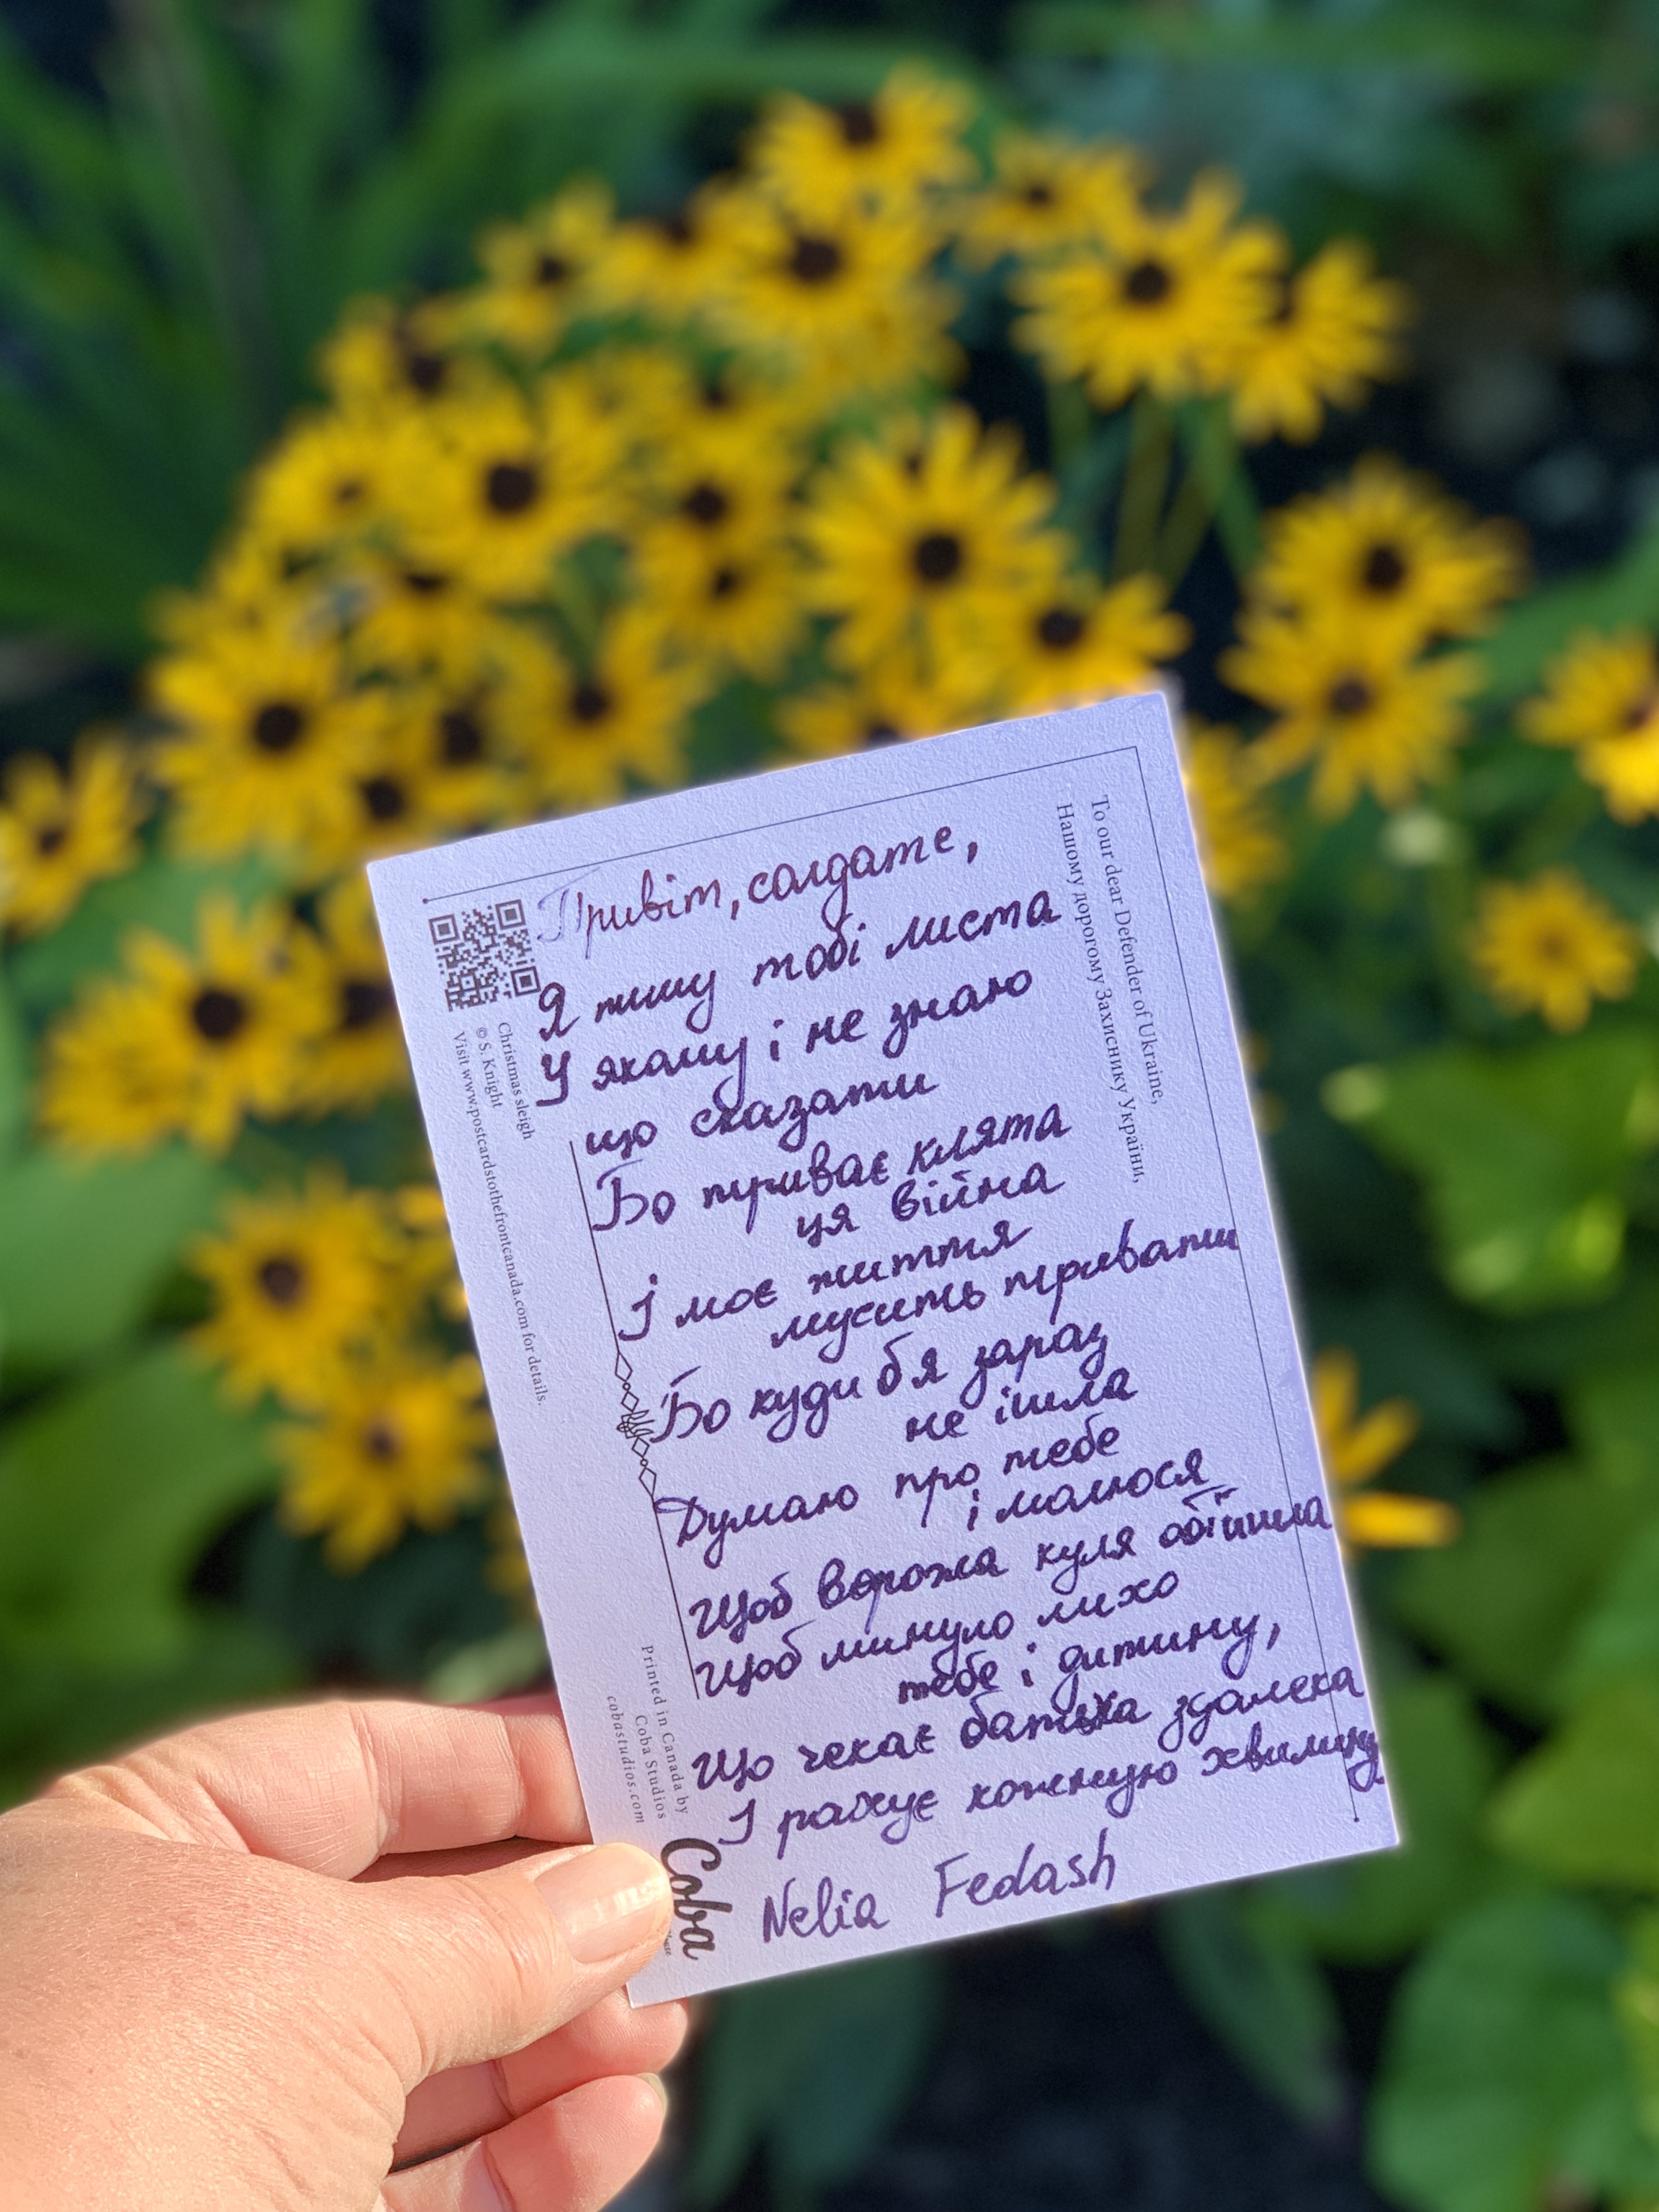 To our dear Defender of Ukraine,
Нашому дорогому Захиснику України,
Привіт, солдате,
Я пишу тобі листа
У якому і не знаю
що сказати
Бо триває клята
ця війна
І моє життя
мусить тривати
Бо куди б я зараз
не ішла
Думаю про тебе
і молюся
Щоб ворожа куля обійшла
Щоб минуло лихо
тебе і дитину,
Що чекає батька здалека
І рахує кожную хвилину
Nelia Fedash
Christmas sleigh
© S. Knight
Visit www.postcardstothefrontcanada.com for details.
Printed in Canada by
Coba Studios
cobastudios.com
Coba